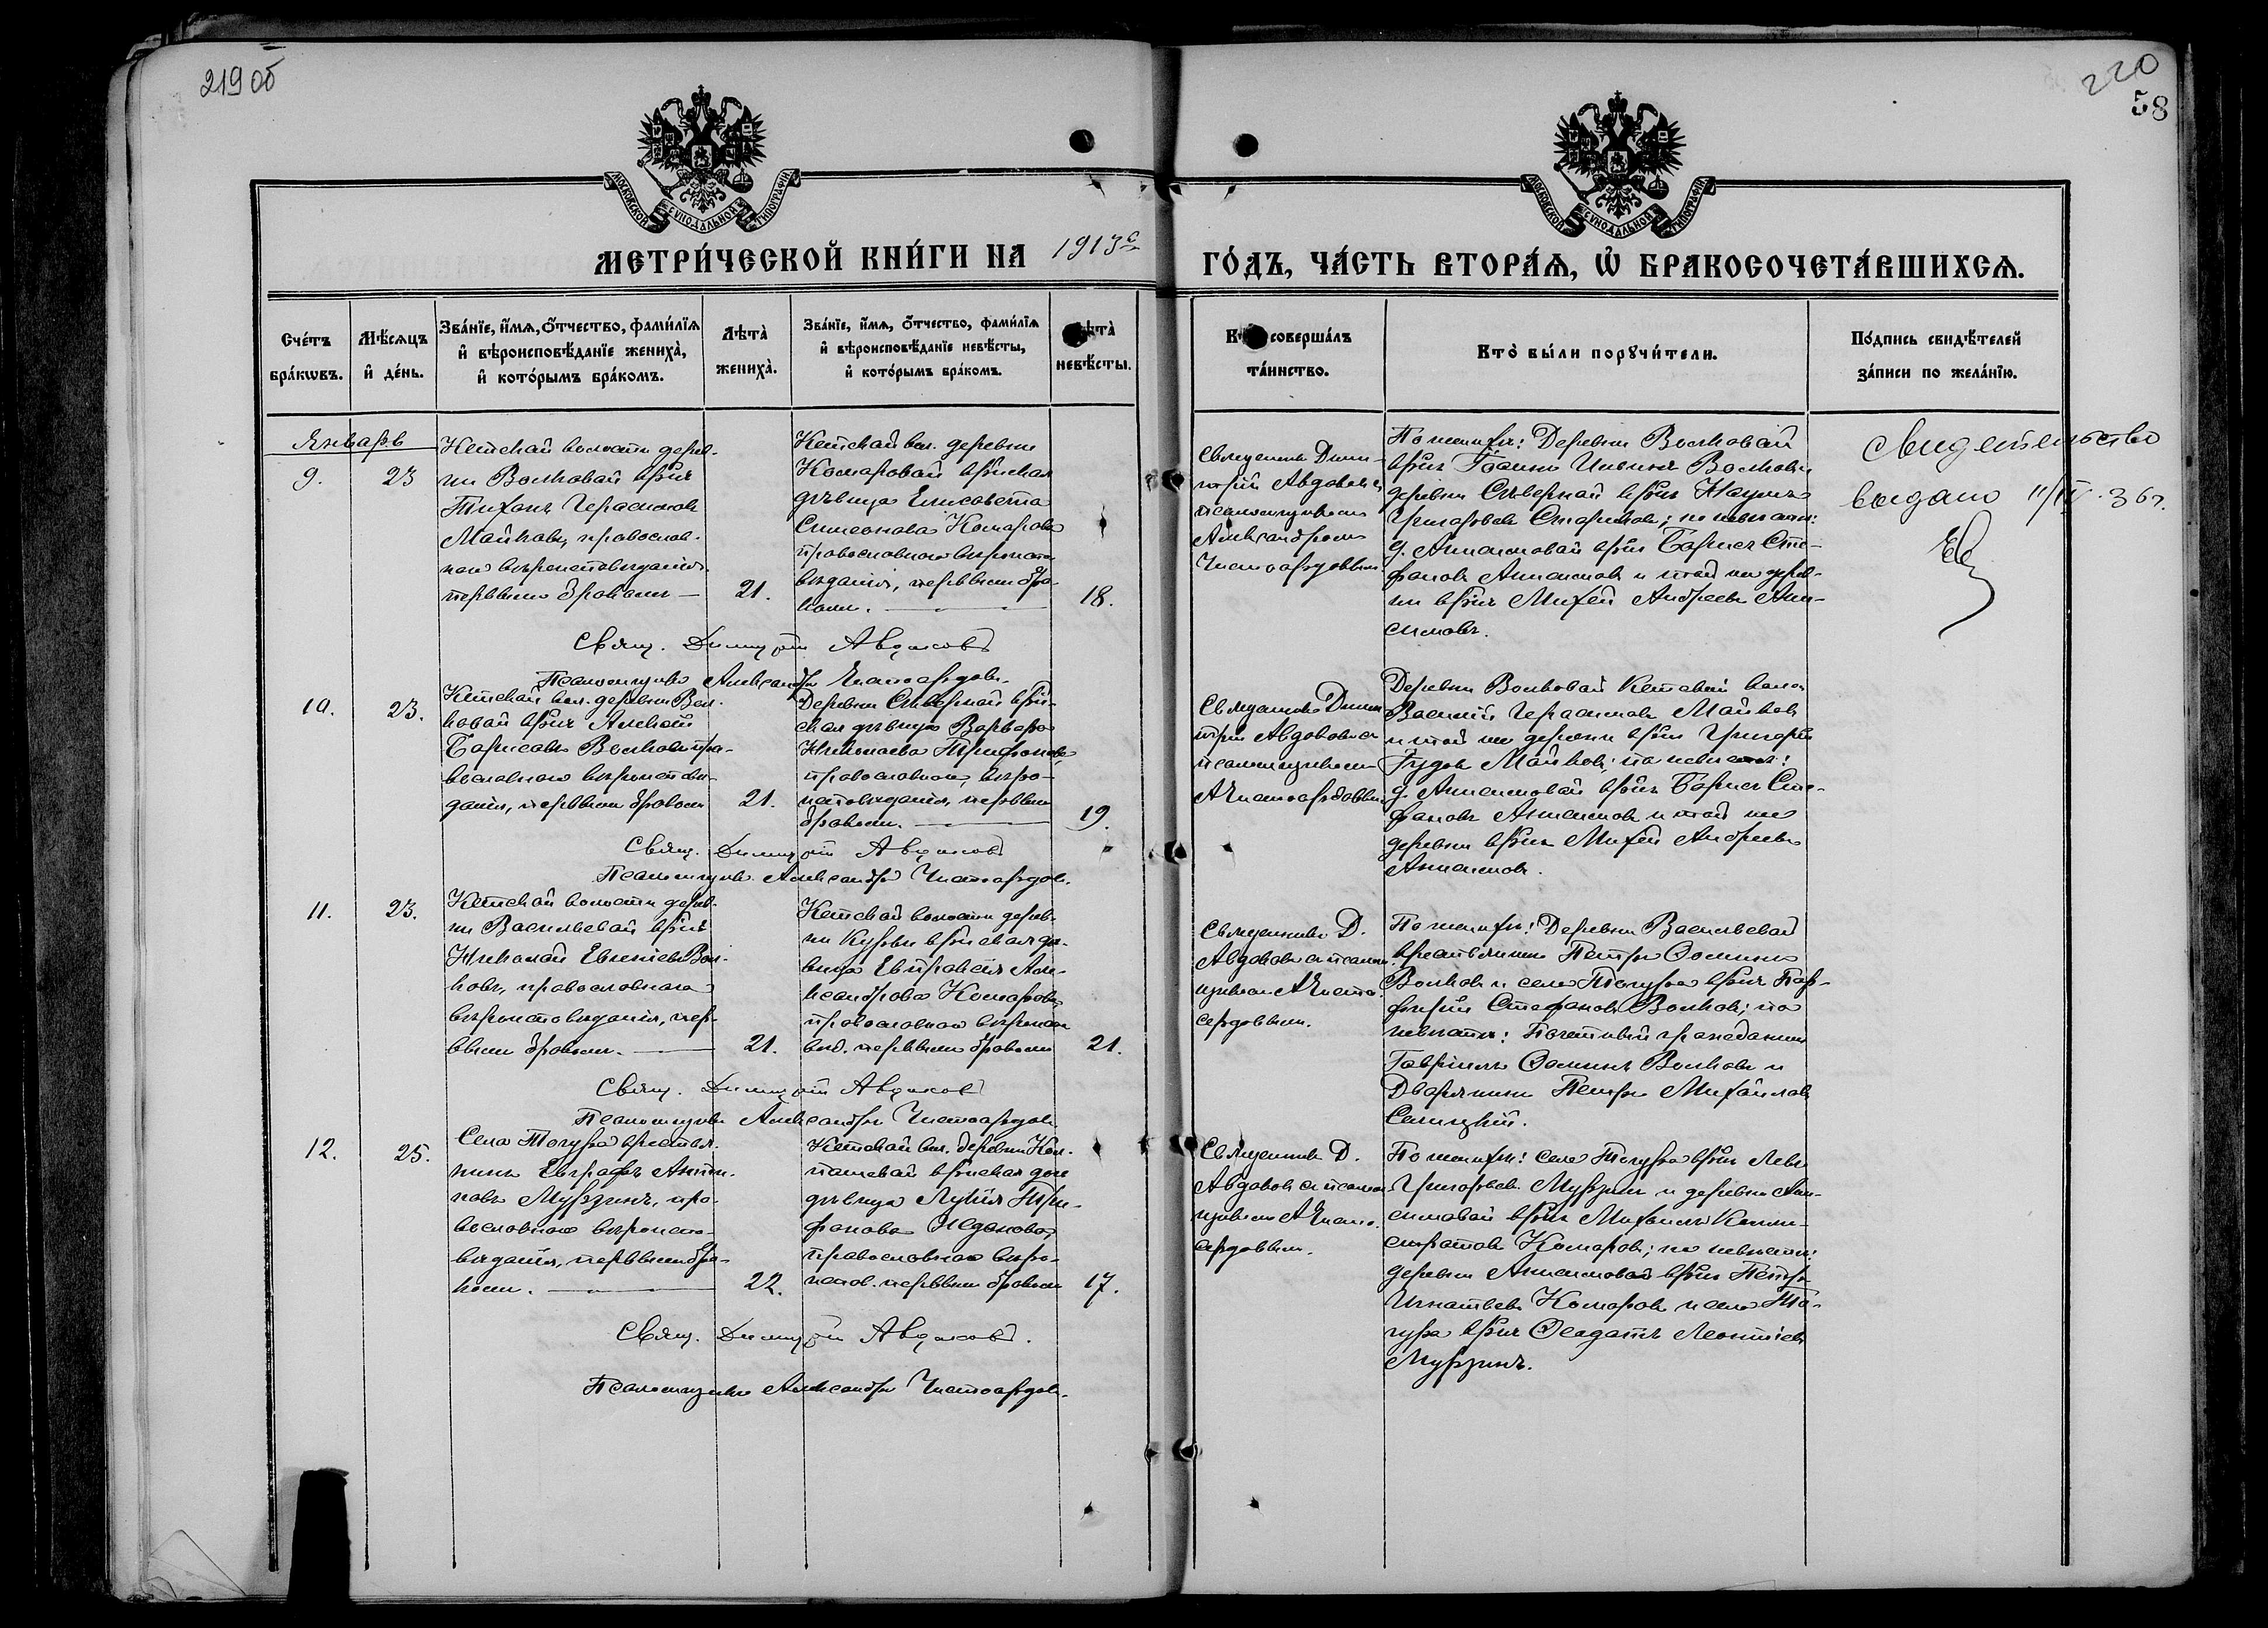 219 об
220
58
МОСКОВСКОЙ СѴНОДАЛЬНОЙ ТИПОГРАФІИ
МОСКОВСКОЙ СѴНОДАЛЬНОЙ ТИПОГРАФІИ
МЕТРИ́ЧЕСКОЙ КНИ́ГИ НА 1913 г
ГО́ДЪ, ЧА́СТЬ ВТОРА́Ѧ, Ѽ БРАКОСОЧЕТА́ВШИХСѦ.
Сче́тъ бра́кѡвъ.
Мѣ́сяцъ и҆ де́нь.
Зва́нїе, и҆́мѧ, ѻ҆́тчество, фами́лїѧ
и҆ вѣроисповѣ́данїе жениха̀,
и҆ кото́рымъ бра́комъ.
Лѣта̀ жениха̀.
Зва́нїе, и҆́мѧ, ѻ҆́тчество, фами́лїѧ
и҆ вѣроисповѣ́данїе невѣ́сты,
и҆ кото́рымъ бра́комъ.
невѣ́сты.
совершáлъ
та́инство.
Кто̀ бы́ли порꙋчи́тели.
По́дпись свидѣ́телей
за́писи по жела́нїю.
Январь
9.
23
Кетской волости дерев-
ни Волковой кр-нъ
Тихонъ Герасимовъ
Майковъ, православ-
наго вѣроисповѣданія
первымъ бракомъ
21.
Кетской вол. деревни
Комаровой кр-нская
дѣвица Елисавета
Симеонова Комарова
православнаго вѣроиспо-
вѣданія, первымъ бра-
комъ.
18.
Священникъ Дими-
трій Авдаковъ съ
псаломщикомъ
Александромъ
Чистосердовымъ
По женихѣ: Деревни Волковой
кр-нъ Іоаннъ Волковъ,
деревни Сѣверной кр-нъ Наумъ
Григорьевъ; по невѣстѣ:
д. Анисимовой кр-нъ Борисъ Сте-
фановъ Анисимовъ и той же дерев-
ни кр-нъ Михей Андреевъ Ани-
симовъ.
Свидетельство
выдано 11/IV-36г.
Свящ. Димитрій Авдаковъ
Псаломщикъ Александръ Чистосердовъ.
10.
23.
Кетской вол. деревни Вол-
ковой кр-нъ Алексій
Борисовъ Волковъ пра-
вославнаго вѣроисповѣ-
данія, первымъ бракомъ
21.
Деревни Сѣверной кр-н-
ская дѣвица Варвара
Николаева Трифонова,
православнаго вѣро-
исповѣданія, первымъ
бракомъ.
19.
Священникъ Дими-
трій Авдаковъ съ
псаломщикомъ
А Чистосердовымъ
Деревни Волковой Кетской волос.
Василій Герасимовъ Майковъ
и той же деревни кр-нъ Григорій
Майковъ; по невѣстѣ:
д. Анисимовой кр-нъ Борисъ Сте-
фановъ Анисимовъ и той же
деревни кр-нъ Михей Андреевъ
Анисимовъ.
Свящ. Димитрій Авдаковъ
Псаломщикъ Александръ Чистосердовъ.
11.
23.
Кетской волости дерев-
ни Васильевой кр-нъ
Николай Евгеніевъ Вол-
ковъ, православнаго
вѣроисповѣданія, пер-
вымъ бракомъ.
21.
Кетской волости дерев-
ни кр-нская дѣ-
вица Евпраксія Але-
ксандрова Комарова,
православнаго вѣроиспо-
вѣд. первымъ бракомъ
21.
Священникъ Д.
Авдаковъ съ псалом-
щикомъ А Чисто-
сердовымъ.
По женихѣ: Деревни Васильевой
крестьянинъ Петръ Ѳоминъ
Волковъ и села Тогура кр-нъ Пор-
фирій Стефановъ Волковъ; по
невѣстѣ: Почетный гражданинъ
Гавріилъ Ѳоминъ Волковъ и
Дворянинъ Петръ Михайловъ
Свящ. Димитрій Авдаковъ
Псаломщикъ Александръ Чистосердовъ
12.
25.
Села Тогура крестья-
нинъ Евграфъ Антіи-
повъ Мурзинъ, пра-
вославнаго вѣроиспо-
вѣданія, первымъ бра-
комъ.
22.
Кетской вол. деревни Кол-
пашевой кр-нская дочь
дѣвица Лукія Три-
фонова
православнаго вѣро-
испов. первымъ бракомъ
17.
Священникъ Д.
Авдаковъ съ псалом-
щикомъ А Чисто-
сердовымъ.
По женихѣ: села Тогура кр-нъ Левъ
Григорьевъ Мурзинъ и деревни Ани-
симовой кр-нъ Михаилъ Калли-
стратовъ Комаровъ; по невѣстѣ:
деревни Анисимовой кр-нъ Петръ
Игнатьевъ Комаровъ и села То-
гура кр-нъ Ѳеодотъ Леонтіевъ
Мурзинъ.
Свящ. Димитрій Авдаковъ.
Псаломщикъ Александръ Чистосердовъ.